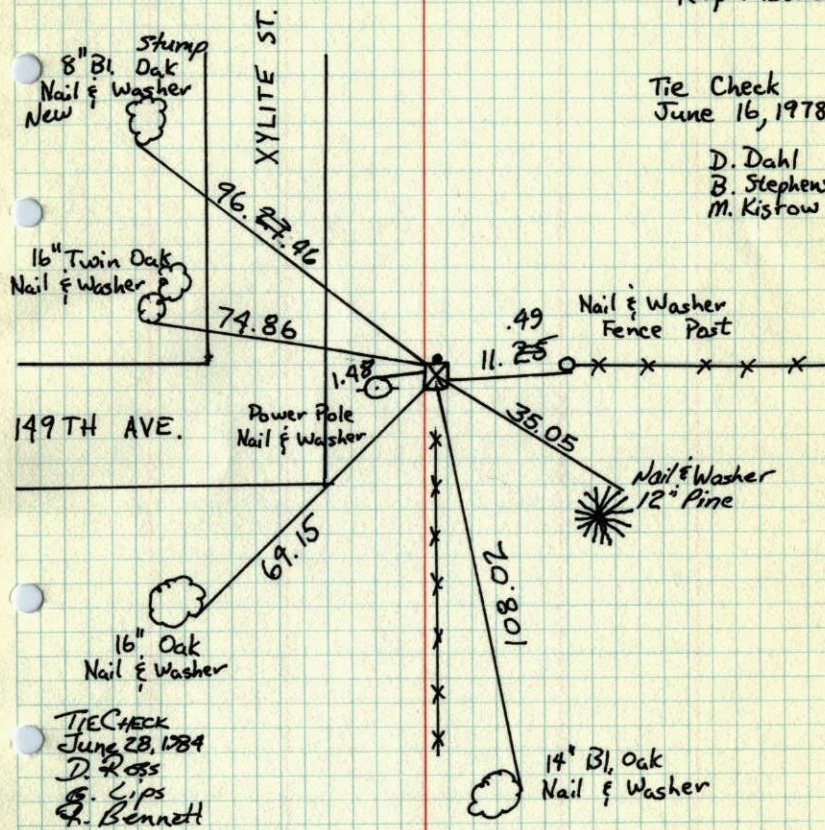 Stump
8" Bl. Oak
Nail & Washer
New
XYLITE ST.
Tie Check
June 16, 1978
D. Dahl
B. Stephens
M. Kistow
96.27.46
16" Twin Oak
Nail & Washer
74.86
Nail & Washer
Fence Post
.49
11.25
1.48
Power Pole
Nail & Washer
149TH AVE.
35.05
Nail & Washer
12" Pine
69.15
108.02
16" Oak
Nail & Washer
TIE CHECK
June 28, 1984
D. Ross
G. Lips
R. Bennett
14" Bl. Oak
Nail & Washer